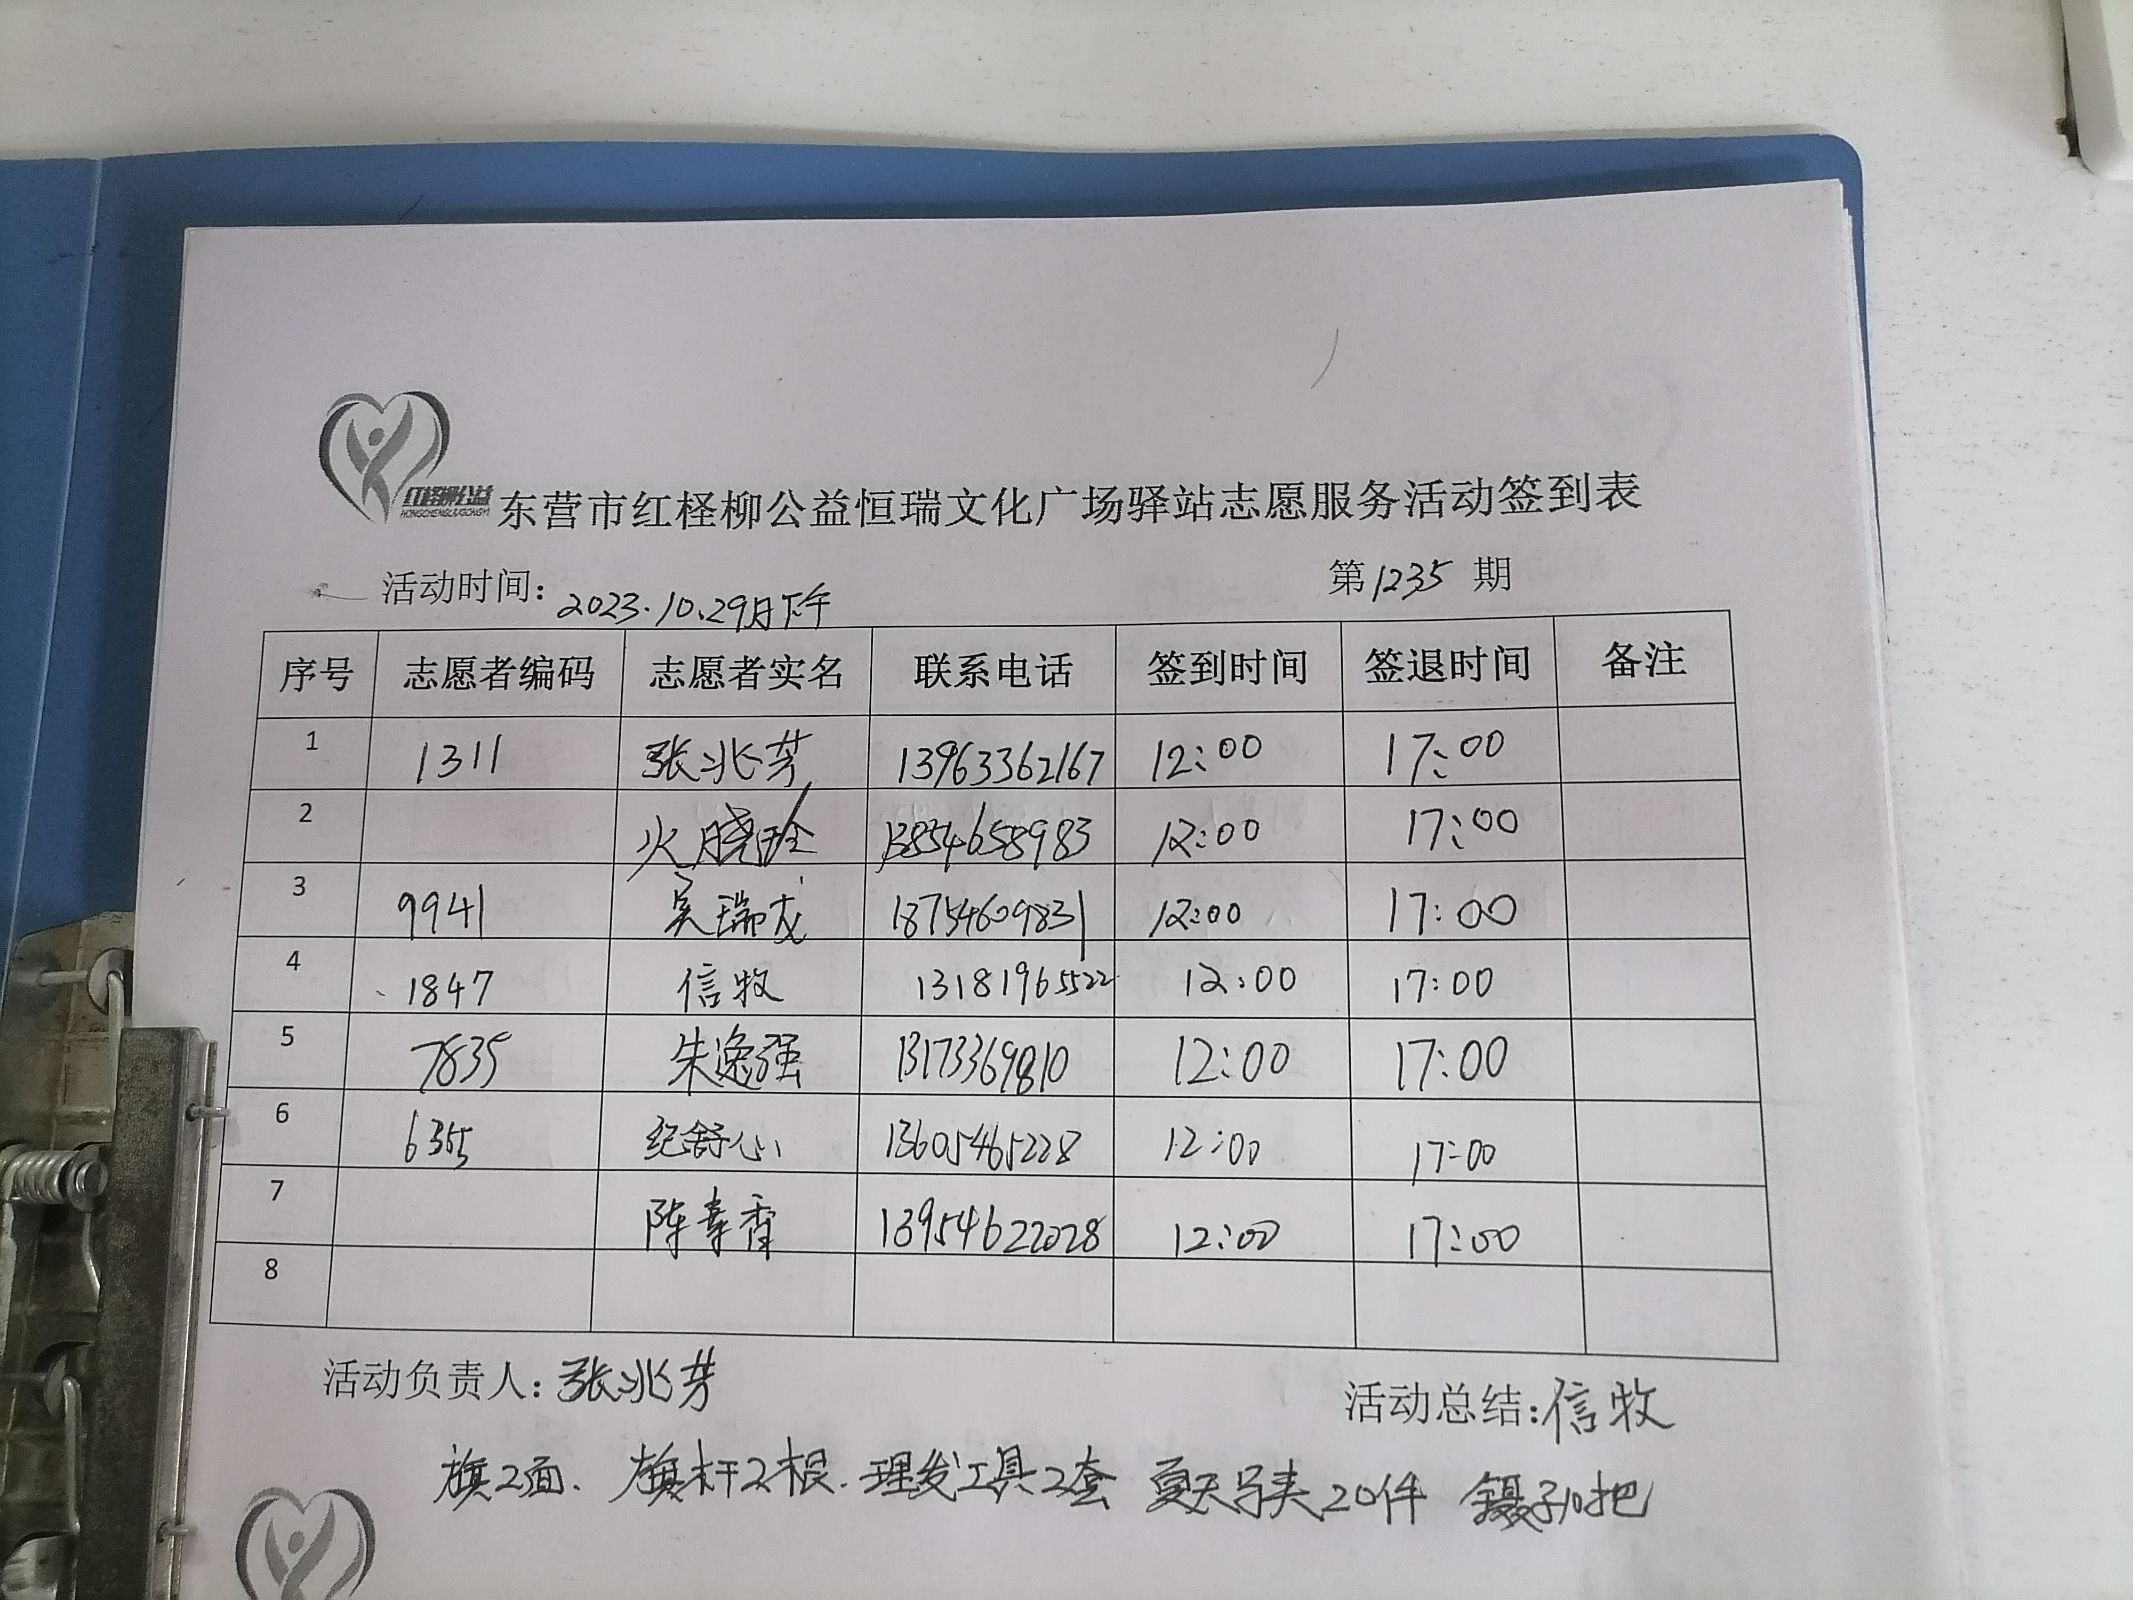 红柽柳公益
HONGCHENGLIUGONGYI
东营市红柽柳公益恒瑞文化广场驿站志愿服务活动签到表
活动时间: 2023.10.29月下午 第1235期
序号 志愿者编码 志愿者实名 联系电话 签到时间 签退时间 备注
1 1311 张兆芳 13963362167 12:00 17:00
2 火晓玲 13854658983 12:00 17:00
3 9941 吴瑞友 18754609831 12:00 17:00
4 1847 信牧 13181965522 12:00 17:00
5 7835 朱逸强 13173369810 12:00 17:00
6 6355 纪舒心 13605465228 12:00 17:00
7 陈幸香 13954622028 12:00 17:00
8
活动负责人: 张兆芳 活动总结: 信牧
旗2面、旗杆2根.理发工具2套 夏天马夹20件 镊子10把